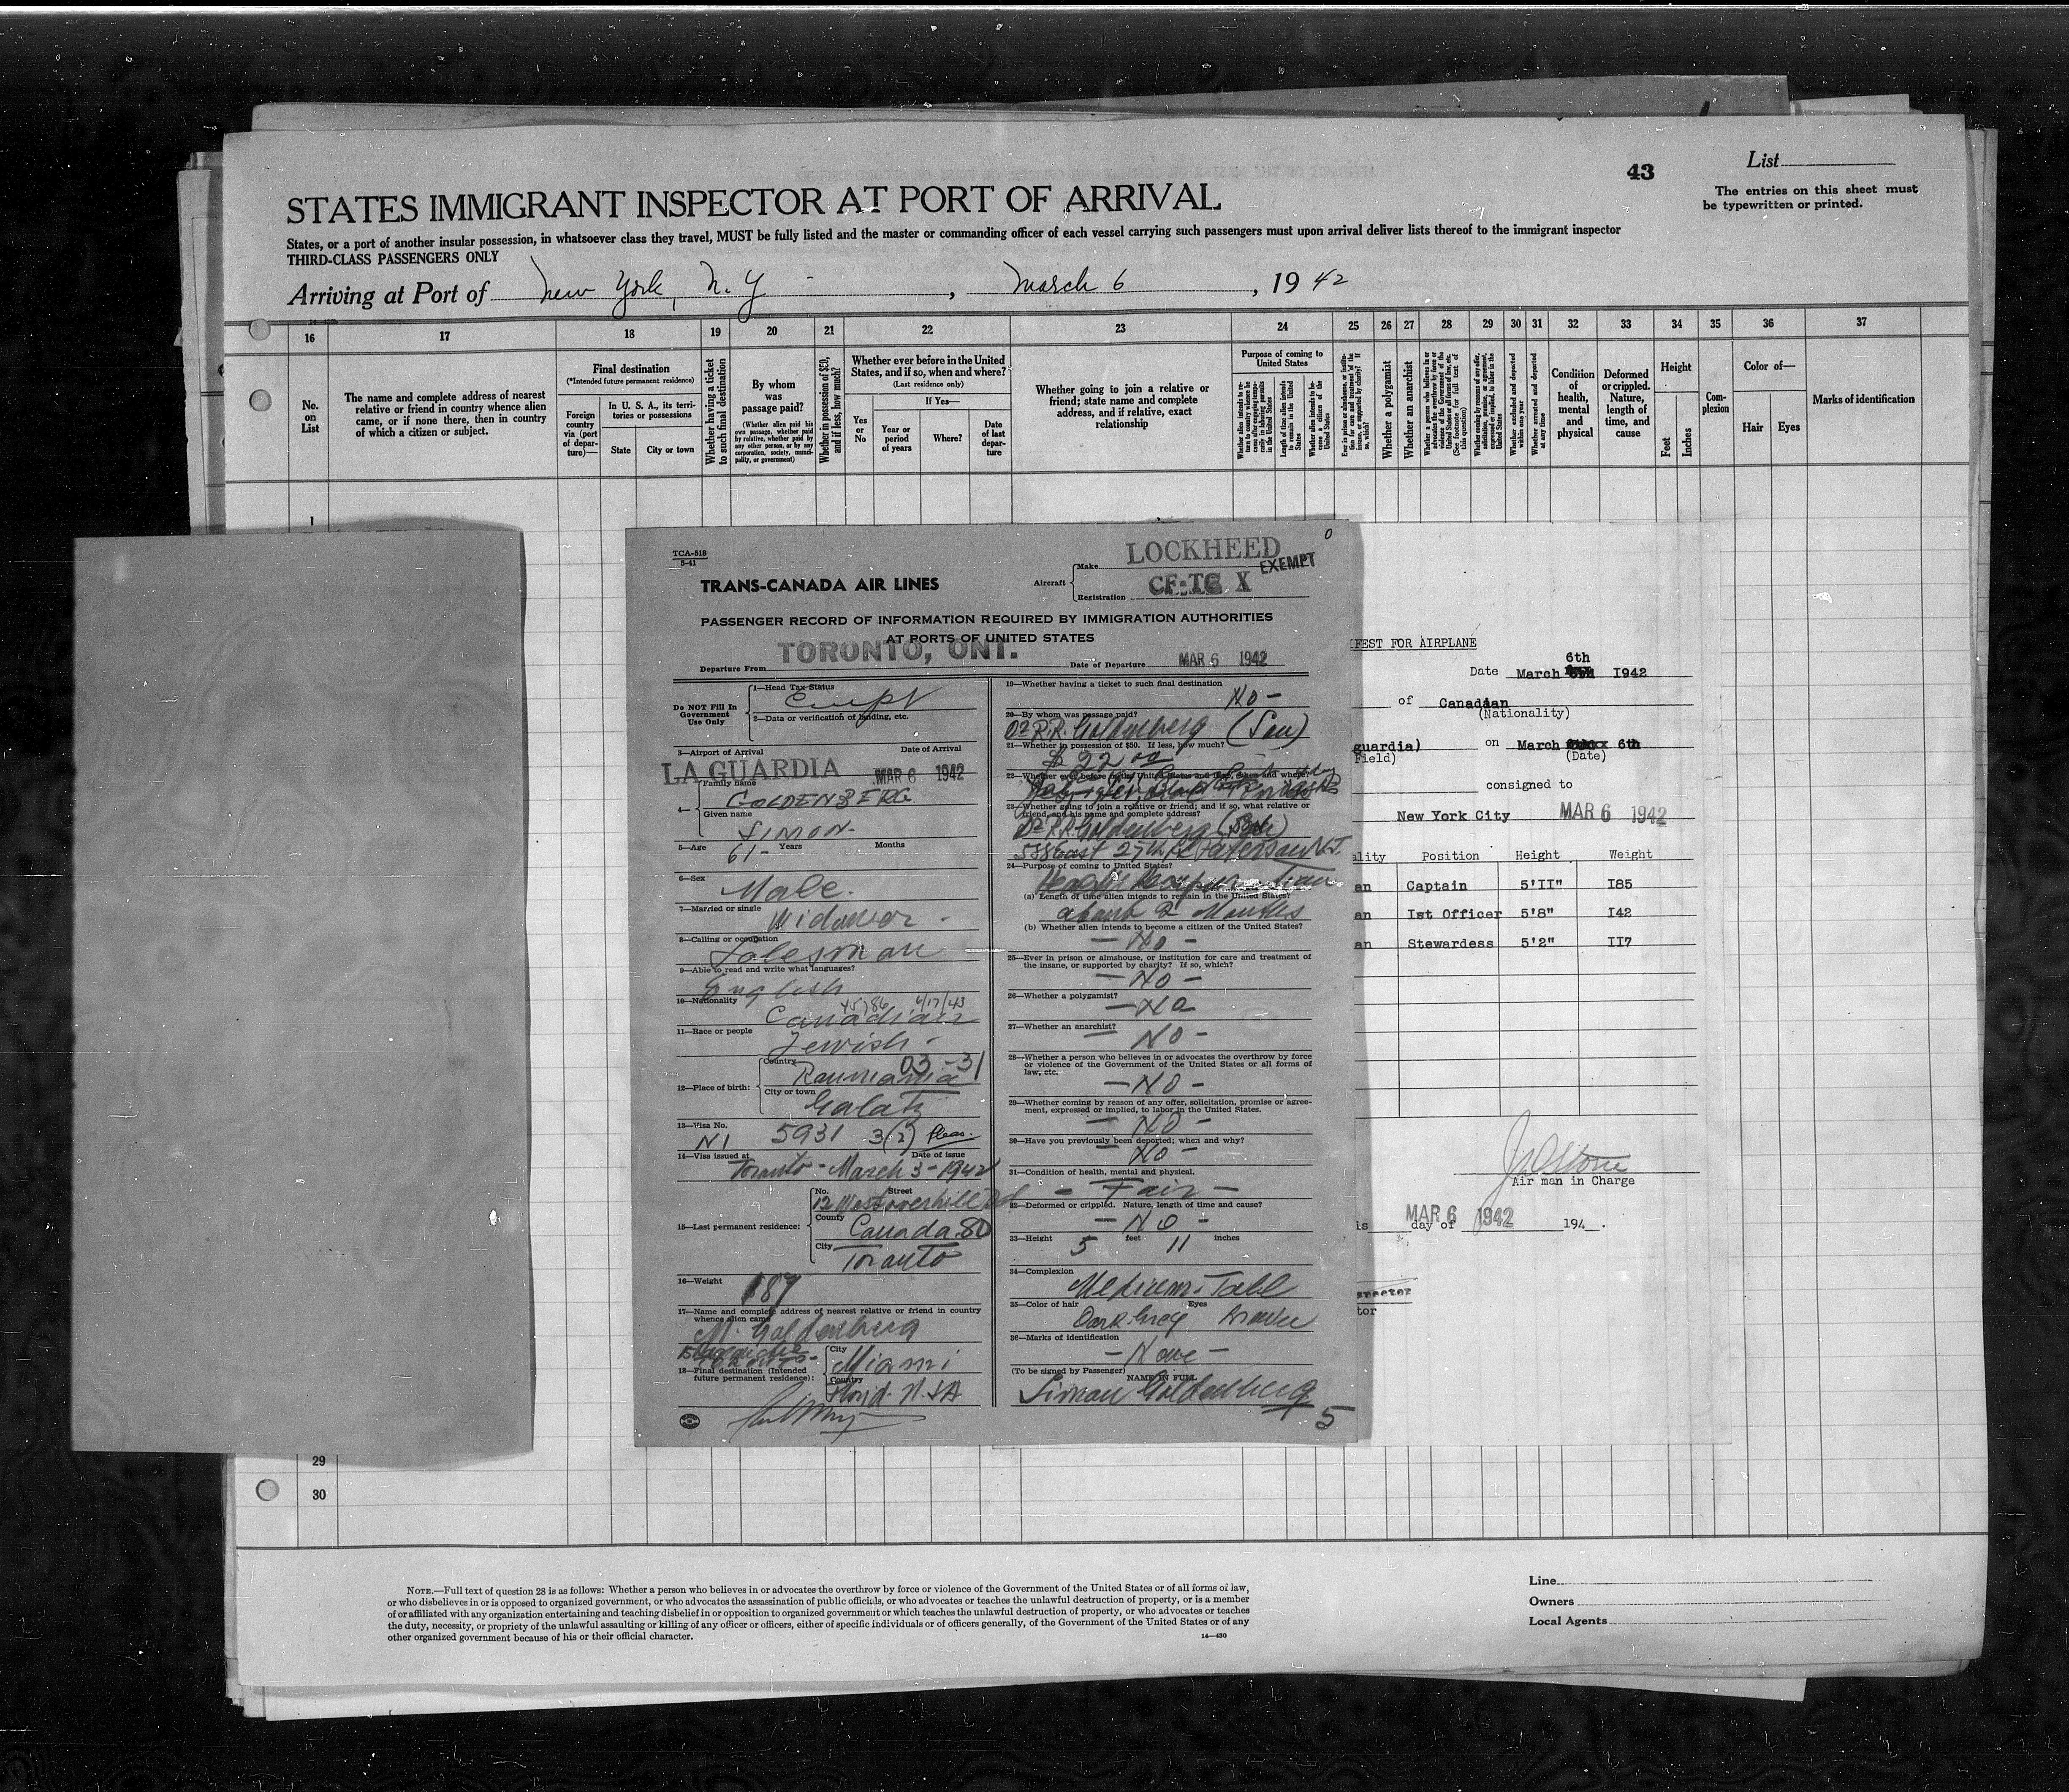 43
List
The entries on this sheet must
be typewritten or printed.
STATES IMMIGRANT INSPECTOR AT PORT OF ARRIVAL
States, or a port of another insular possession, in whatsoever class they travel, MUST be fully listed and the master or commanding officer of each vessel carrying such passengers must upon arrival deliver lists thereof to the immigrant inspector
THIRD-CLASS PASSENGERS ONLY
Arriving at Port of New York, N.Y. , March 6 , 1942
16 17 18 19 20 21 22 23 24 25 26 27 28 29 30 31 32 33 34 35 36 37
No.
on
List
The name and complete address of nearest
relative or friend in country whence alien
came, or if none there, then in country
of which a citizen or subject.
Final destination
(*Intended future permanent residence)
Foreign
country
via (port
of depar-
ture)—
In U. S. A., its terri-
tories or possessions
State
City or town
Whether having a ticket
to such final destination
By whom
was
passage paid?
(Whether alien paid his
own passage, whether paid
by relative, whether paid by
any other person, or by any
corporation, society, munici-
pality, or government)
Whether in possession of $50,
and if less, how much?
Whether ever before in the United
States, and if so, when and where?
(Last residence only)
Yes
or
No
If Yes—
Year or
period
of years
Where?
Date
of last
depar-
ture
Whether going to join a relative or
friend; state name and complete
address, and if relative, exact
relationship
Purpose of coming to
United States
Length of time alien intends
to remain in the United
States
Whether alien intends to be-
come a citizen of the
United States
Whether a polygamist
Whether an anarchist
Whether excluded and deported
within one year
Whether arrested and deported
at any time
Condition
of
health,
mental
and
physical
Deformed
or crippled.
Nature,
length of
time, and
cause
Height
Feet
Inches
Com-
plexion
Color of—
Hair
Eyes
Marks of identification
1
TCA-518
5-41
TRANS-CANADA AIR LINES
Aircraft
Make LOCKHEED
EXEMPT
Registration CF-TC X
PASSENGER RECORD OF INFORMATION REQUIRED BY IMMIGRATION AUTHORITIES
AT PORTS OF UNITED STATES
Departure From TORONTO, ONT. Date of Departure MAR 6 1942
Do NOT Fill In
Government
Use Only
1—Head Tax Status
2—Data or verification of landing, etc.
3—Airport of Arrival Date of Arrival
LA GUARDIA MAR 6 1942
4— Family name
GOLDENBERG
Given name
SIMON
5—Age 61 - Years Months
6—Sex Male.
7—Married or single Widower -
8—Calling or occupation
Salesman
9—Able to read and write what languages?
English
10—Nationality 6/17/43
Canadian
11—Race or people
Jewish -
12—Place of birth: Country 03-31
Roumania
City or town
Galatz
13—Visa No.
NI 5931 3(2)
14—Visa issued at Date of issue
Toronto - March 3 - 1942
15—Last permanent residence: No. Street
12 Westoverhill Rd
County
Canada 80
City
Toronto
16—Weight 187
17—Name and complete address of nearest relative or friend in country
whence alien came
M. Goldenberg
18—Final destination (Intended
future permanent residence):
City Miami
Country
19—Whether having a ticket to such final destination
No -
20—By whom was passage paid?
Dr R.R. Goldenberg (Son)
21—Whether in possession of $50. If less, how much?
$ 22 00
22—Whether ever before in the United States and if so, when and where?
23—Whether going to join a relative or friend; and if so, what relative or
friend, and his name and complete address?
Dr R.R. Goldenberg (Son)
588 East 27th St Paterson N.J.
24—Purpose of coming to United States?
(a) Length of time alien intends to remain in the United States?
about 2 Months
(b) Whether alien intends to become a citizen of the United States?
- No -
25—Ever in prison or almshouse, or institution for care and treatment of
the insane, or supported by charity? If so, which?
- No -
26—Whether a polygamist?
- No
27—Whether an anarchist?
- No -
28—Whether a person who believes in or advocates the overthrow by force
or violence of the Government of the United States or all forms of
law, etc.
- No -
29—Whether coming by reason of any offer, solicitation, promise or agree-
ment, expressed or implied, to labor in the United States.
- No -
30—Have you previously been deported; when and why?
- No -
31—Condition of health, mental and physical.
- Fair -
32—Deformed or crippled. Nature, length of time and cause?
- No -
33—Height 5 feet 11 inches
34—Complexion
Medium - Tall
35—Color of hair Eyes
Dark-Grey Brown
36—Marks of identification
- None -
(To be signed by Passenger) NAME IN FULL
Simon Goldenberg
5
FEST FOR AIRPLANE
6th
Date March 1942
of Canadian
(Nationality)
guardia) on March 6th
Field) (Date)
consigned to
New York City MAR 6 1942
ality Position Height Weight
an Captain 5'II" I85
an Ist Officer 5'8" I42
an Stewardess 5'2" II7
Air man in Charge
is MAR 6 1942 day of 194 .
tor
29
30
NOTE.—Full text of question 28 is as follows: Whether a person who believes in or advocates the overthrow by force or violence of the Government of the United States or of all forms of law,
or who disbelieves in or is opposed to organized government, or who advocates the assassination of public officials, or who advocates or teaches the unlawful destruction of property, or is a member
of or affiliated with any organization entertaining and teaching disbelief in or opposition to organized government or which teaches the unlawful destruction of property, or who advocates or teaches
the duty, necessity, or propriety of the unlawful assaulting or killing of any officer or officers, either of specific individuals or of officers generally, of the Government of the United States or of any
other organized government because of his or their official character.
14—430
Line
Owners
Local Agents